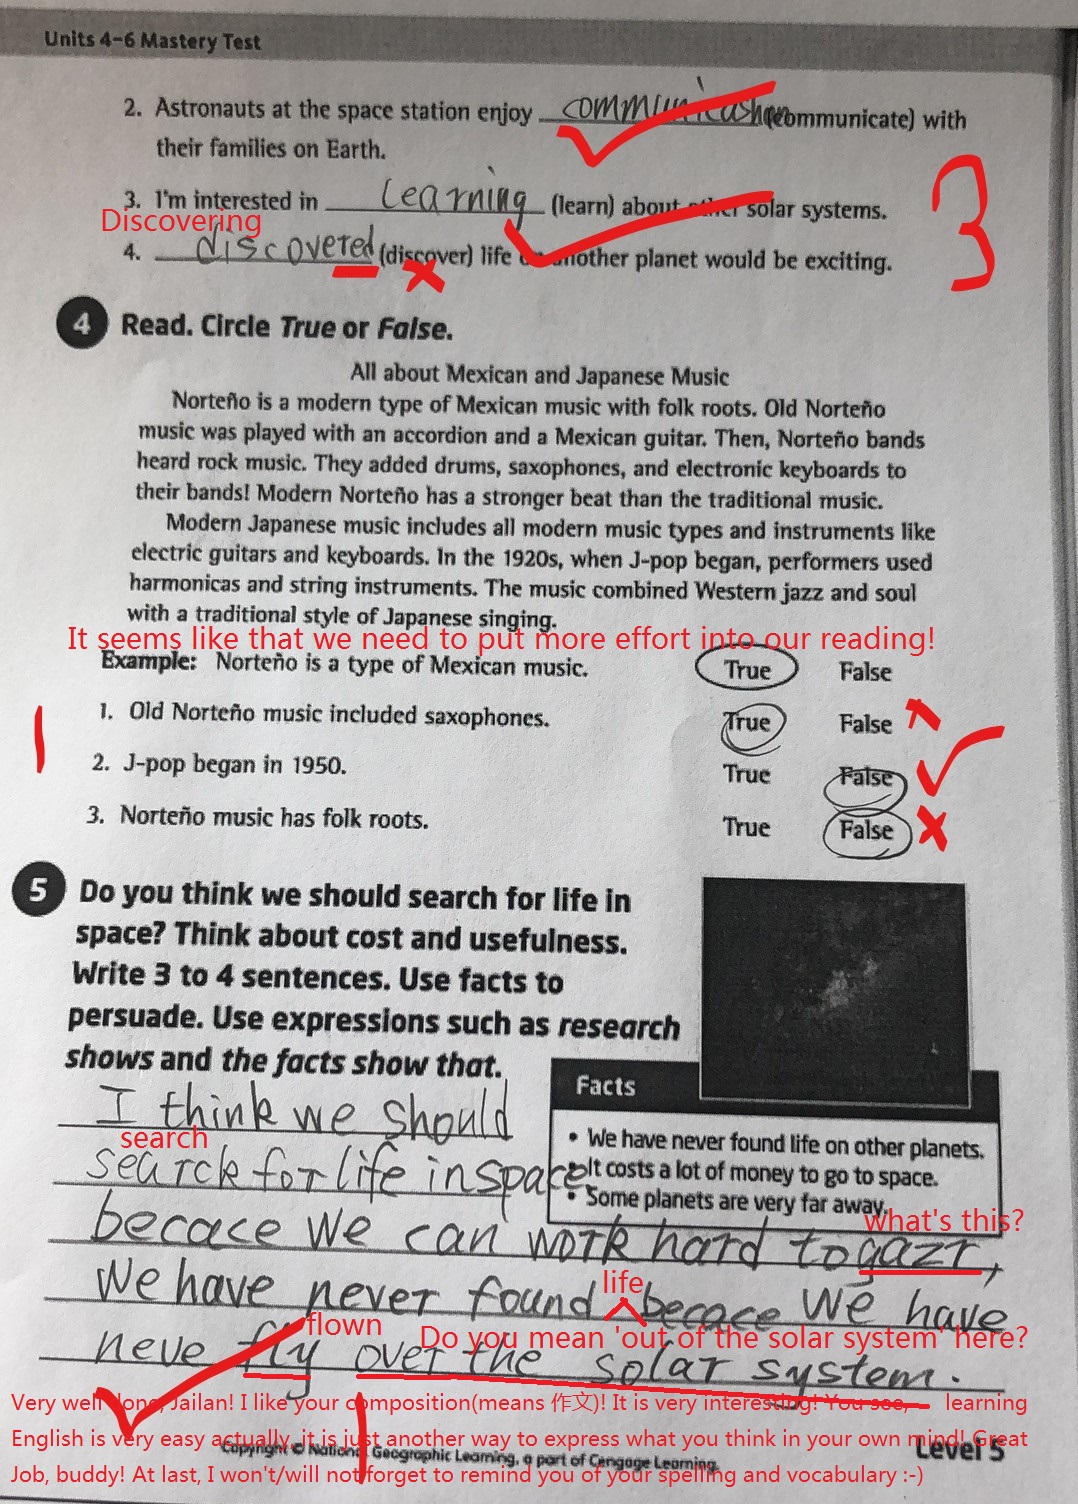 Units 4–6 Mastery Test
2. Astronauts at the space station enjoy (communicate) with
their families on Earth.
3. I'm interested in learning (learn) about other solar systems.
Discovering
4. discovered (discover) life on another planet would be exciting.
3
4 Read. Circle True or False.
All about Mexican and Japanese Music
Norteño is a modern type of Mexican music with folk roots. Old Norteño
music was played with an accordion and a Mexican guitar. Then, Norteño bands
heard rock music. They added drums, saxophones, and electronic keyboards to
their bands! Modern Norteño has a stronger beat than the traditional music.
Modern Japanese music includes all modern music types and instruments like
electric guitars and keyboards. In the 1920s, when J-pop began, performers used
harmonicas and string instruments. The music combined Western jazz and soul
with a traditional style of Japanese singing.
It seems like that we need to put more effort into our reading!
Example: Norteño is a type of Mexican music. True False
1. Old Norteño music included saxophones. True False
1
2. J-pop began in 1950. True False
3. Norteño music has folk roots. True False
5 Do you think we should search for life in
space? Think about cost and usefulness.
Write 3 to 4 sentences. Use facts to
persuade. Use expressions such as research
shows and the facts show that.
Facts
• We have never found life on other planets.
• It costs a lot of money to go to space.
• Some planets are very far away.
I think we should
search
searck for life in space
becace we can work hard to gazr,
what's this?
We have never found becace we have
life
neve fly over the solar system.
flown
Do you mean 'out of the solar system' here?
Very well done, Jailan! I like your composition(means 作文)! It is very interesting! You see, learning
English is very easy actually, it is just another way to express what you think in your own mind! Great
Job, buddy! At last, I won't/will not forget to remind you of your spelling and vocabulary :-)
1
Copyright © National Geographic Learning, a part of Cengage Learning.
Level 5